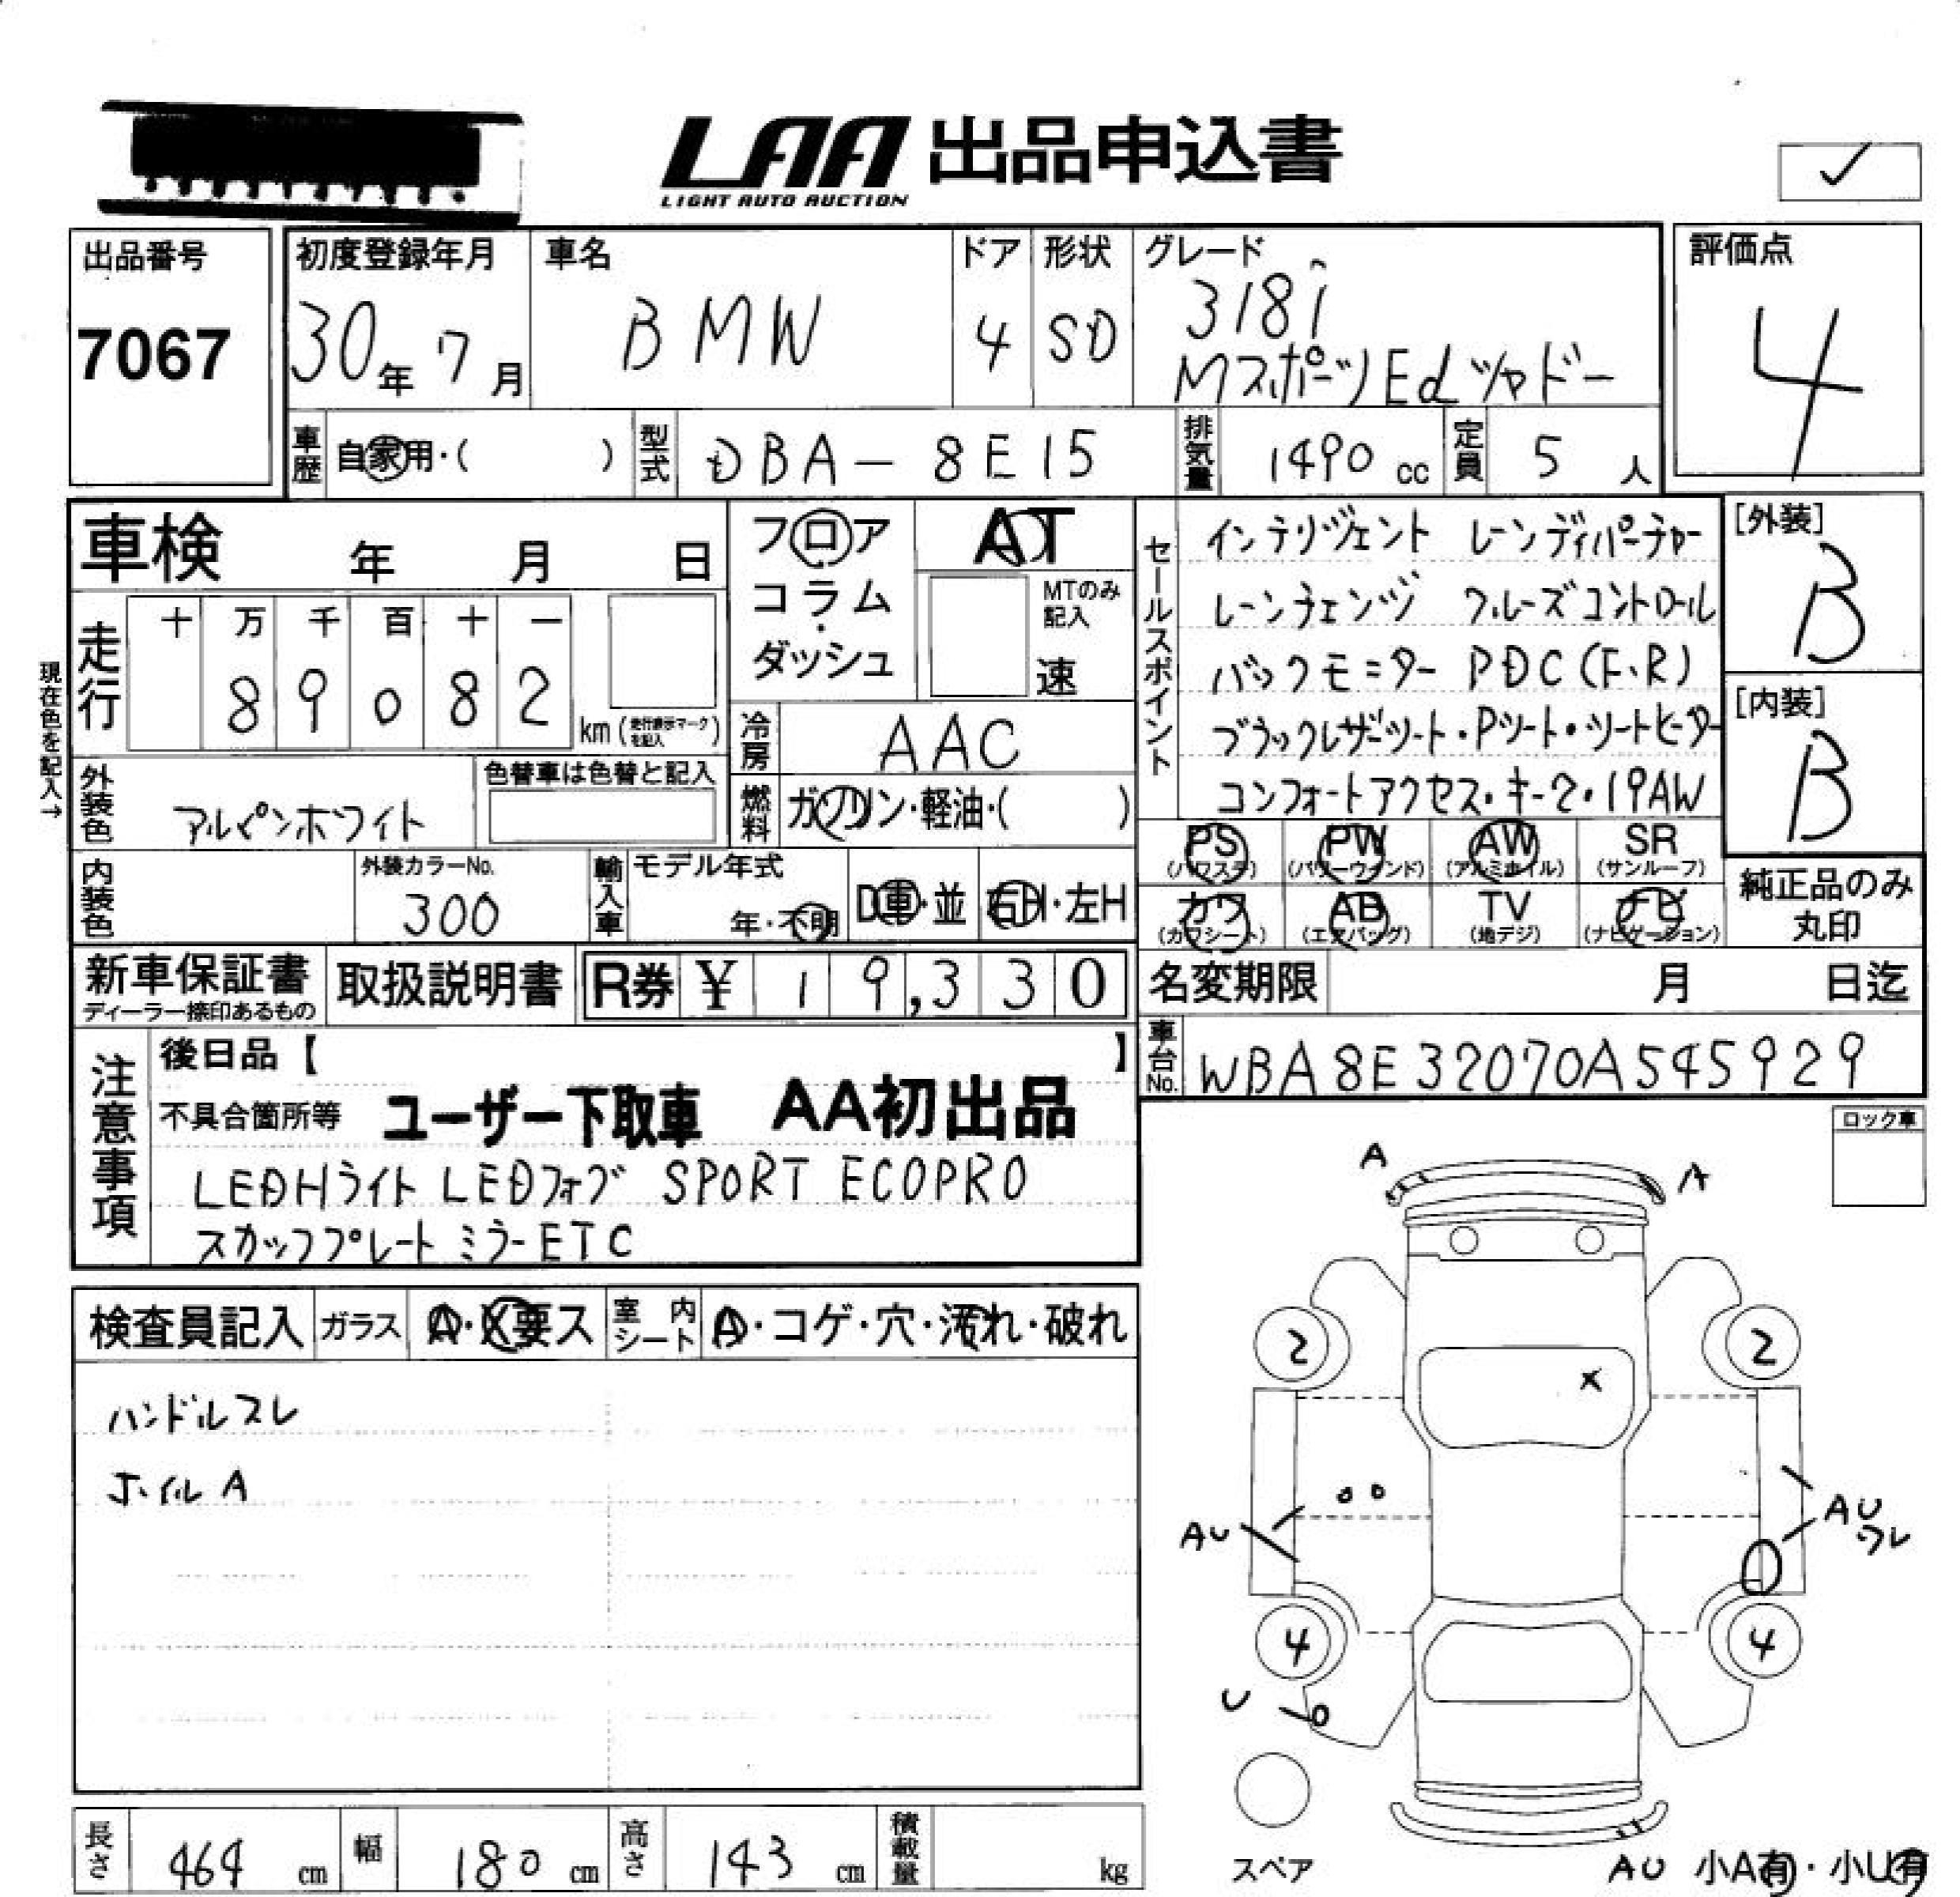 LAA 出品申込書
LIGHT AUTO AUCTION
✓
出品番号
7067
初度登録年月
30年 7月
車名
BMW
ドア
4
形状
SD
グレード
318i
MスポーツEdシャドー
評価点
4
車歴
自家用・( )
型式
DBA-8E15
排気量
1490 cc
定員
5 人
車検 年 月 日
フロア
コラム・
ダッシュ
AT
MTのみ
記入
速
セールスポイント
インテリジェント レーンディパーチャー
レーンチェンジ クルーズコントロール
バックモニター PDC(F、R)
ブラックレザーシート・Pシート・シートヒーター
コンフォートアクセス・キー2・19AW
[外装]
B
[内装]
B
現在色を記入→
走行
十 万 千 百 十 一
8 9 0 8 2
km (走行表示マークを記入)
冷房
AAC
外装色
アルピンホワイト
色替車は色替と記入
燃料
ガソリン・軽油・( )
PS
(パワステ)
PW
(パワーウインド)
AW
(アルミホイル)
SR
(サンルーフ)
カワ
(カワシート)
AB
(エアバッグ)
TV
(地デジ)
ナビ
(ナビゲーション)
純正品のみ
丸印
内装色
外装カラーNo.
300
輸入車
モデル年式
年・不明
D車・並
右H・左H
新車保証書
ディーラー捺印あるもの
取扱説明書
R券 ¥ 19,330
名変期限 月 日迄
車台No.
WBA8E32070A545929
注意事項
後日品【 】
不具合箇所等 ユーザー下取車 AA初出品
LEDHライト LEDフォグ SPORT ECOPRO
スカッフプレート ミラーETC
ロック車
検査員記入
ガラス
A・X要ス
室内シート
A・コゲ・穴・汚れ・破れ
ハンドルスレ
ホイルA
A
A
2
2
X
AU
AU
ワレ
4
4
U
スペア
AU 小A有・小U有
長さ
464 cm
幅
180 cm
高さ
143 cm
積載量
kg